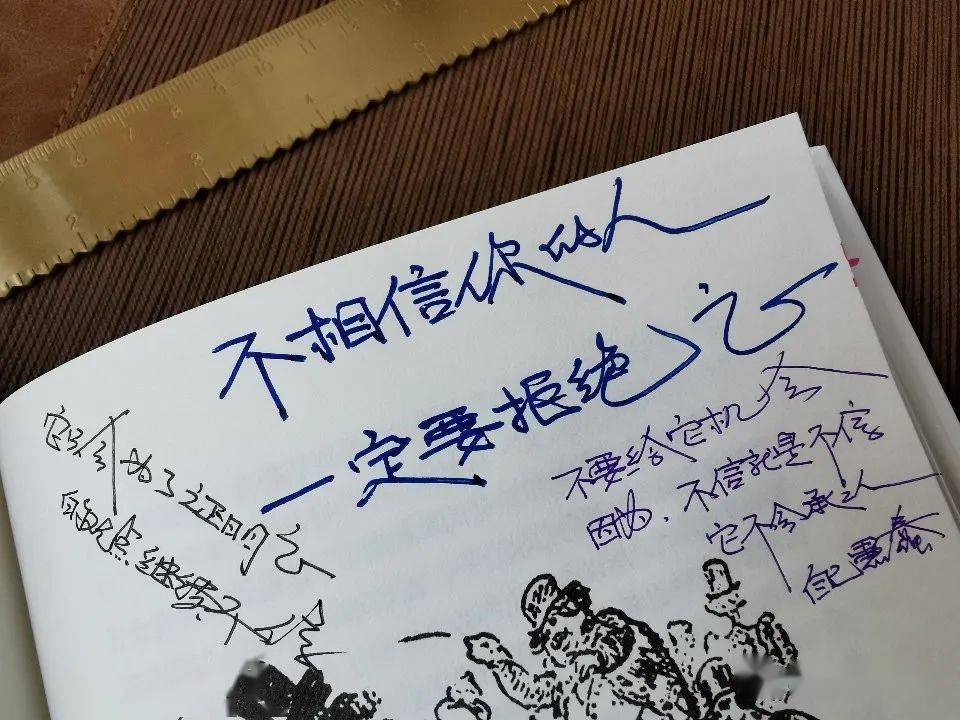 不相信你的人
一定要拒绝它
不要给它机会
因为，不信就是不信
它不会承认
自己愚蠢
它只会为了证明它
点继续